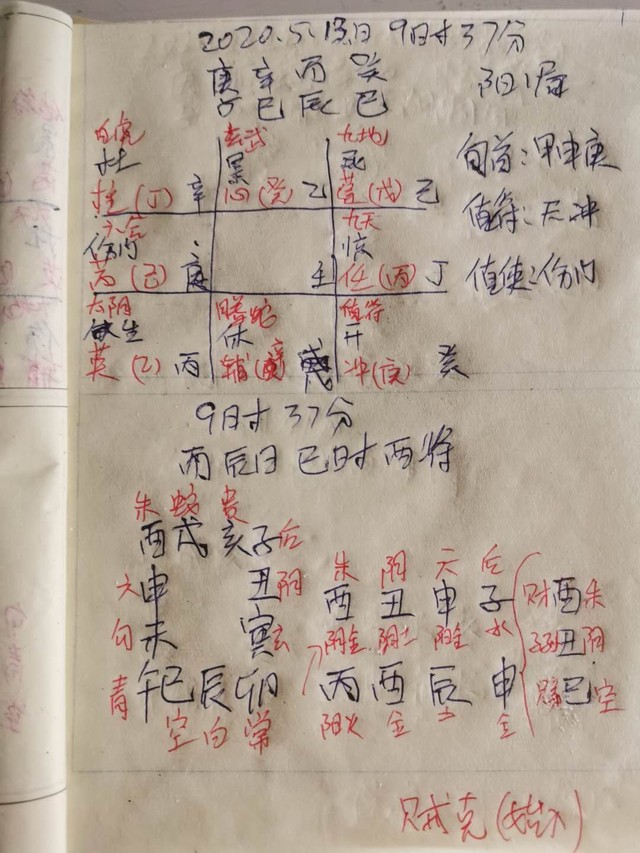 2020.5.13日 9时37分
庚 辛 丙 癸
子 巳 辰 巳
阳1局
白虎 玄武 九地
杜 景 死
柱(丁) 辛 心(癸) 乙 芮(戊) 己
旬首:甲申庚
六合 九天
伤门 惊
(己) 庚 壬 任(丙) 丁
值符:天冲
值使:伤门
太阴 螣蛇 值符
生 休 开
英(乙) 丙 辅 戊 冲(庚) 癸
9时37分
丙辰日 巳时 酉将
朱 蛇 贵
酉 戌 亥 子 后
六 申 丑 阴
勾 未 寅 玄
青 午 巳 辰 卯
空 白 常
朱 阴 六 后
酉 丑 申 子
阴金 阴土 阳金 水
丙 酉 辰 申
阳火 金 土 金
财 酉 朱
子孙 丑 阴
巳 空
贼克(始入)